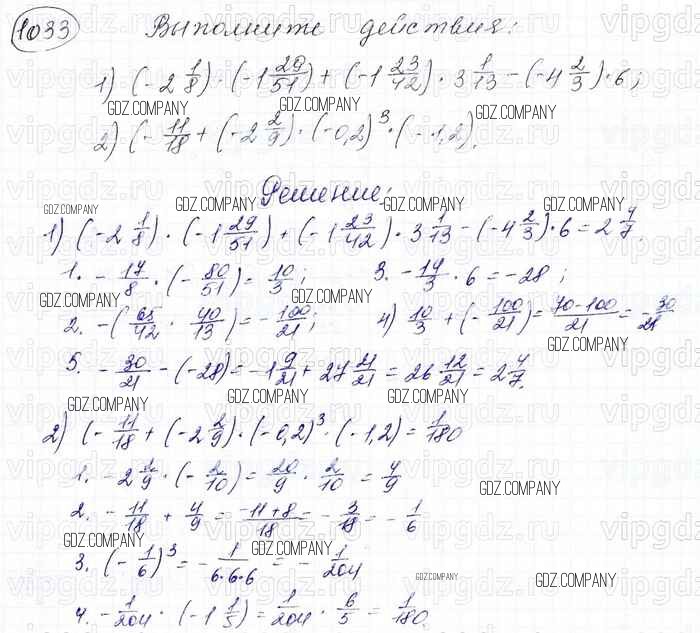 1033 Выполните действия:
1) (-2 1/8) · (-1 29/51) + (-1 23/42) · 3 1/13 - (-4 2/3) · 6;
2) (- 11/18 + (-2 2/9) · (-0,2)^3 · (-1,2).
Решение:
1) (-2 1/8) · (-1 29/51) + (-1 23/42) · 3 1/13 - (-4 2/3) · 6 = 2 4/7.
1. - 17/8 · (- 80/51) = 10/3; 3. - 14/3 · 6 = -28;
2. -( 65/42 · 40/13 ) = - 100/21; 4) 10/3 + (- 100/21) = 70-100/21 = - 30/21
5. - 30/21 - (-28) = -1 9/21 + 27 21/21 = 26 12/21 = 2 4/7.
2) (- 11/18 + (-2 2/9) · (-0,2)^3 · (-1,2) = 1/180
1. -2 2/9 · (- 2/10) = 20/9 · 2/10 = 4/9
2. - 11/18 + 4/9 = -11+8/18 = - 3/18 = - 1/6
3. (- 1/6)^3 = - 1/6·6·6 = - 1/204
4. - 1/204 · (-1 1/5) = 1/204 · 6/5 = 1/180.
GDZ.COMPANY
vipgdz.ru